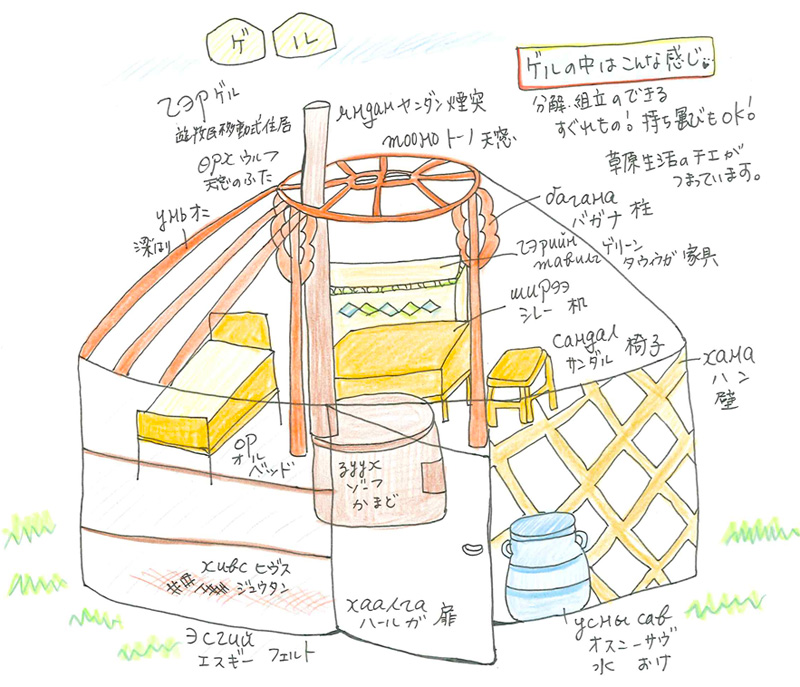 ゲル
ゲルの中はこんな感じ。
分解・組立のできる
すぐれもの！持ち運びもOK！
草原生活のチエが
つまっています。
гэр ゲル
遊牧民移動式住居
өрх ウルフ
天窓のふた
унь オニ
яндан ヤンダン 煙突
тооно トーノ 天窓
багана
バガナ 柱
гэрийн ゲリーン
тавилга タウィウガ 家具
ширээ
シレー 机
сандал
サンダル 椅子
хана
ハン
壁
ор
オル
ベッド
зуух
ゾーフ
かまど
хивс ヒヴス
ジュウタン
хаалга
ハールガ 扉
эсгий
エスギー フェルト
усны сав
オスニーサヴ
水 おけ